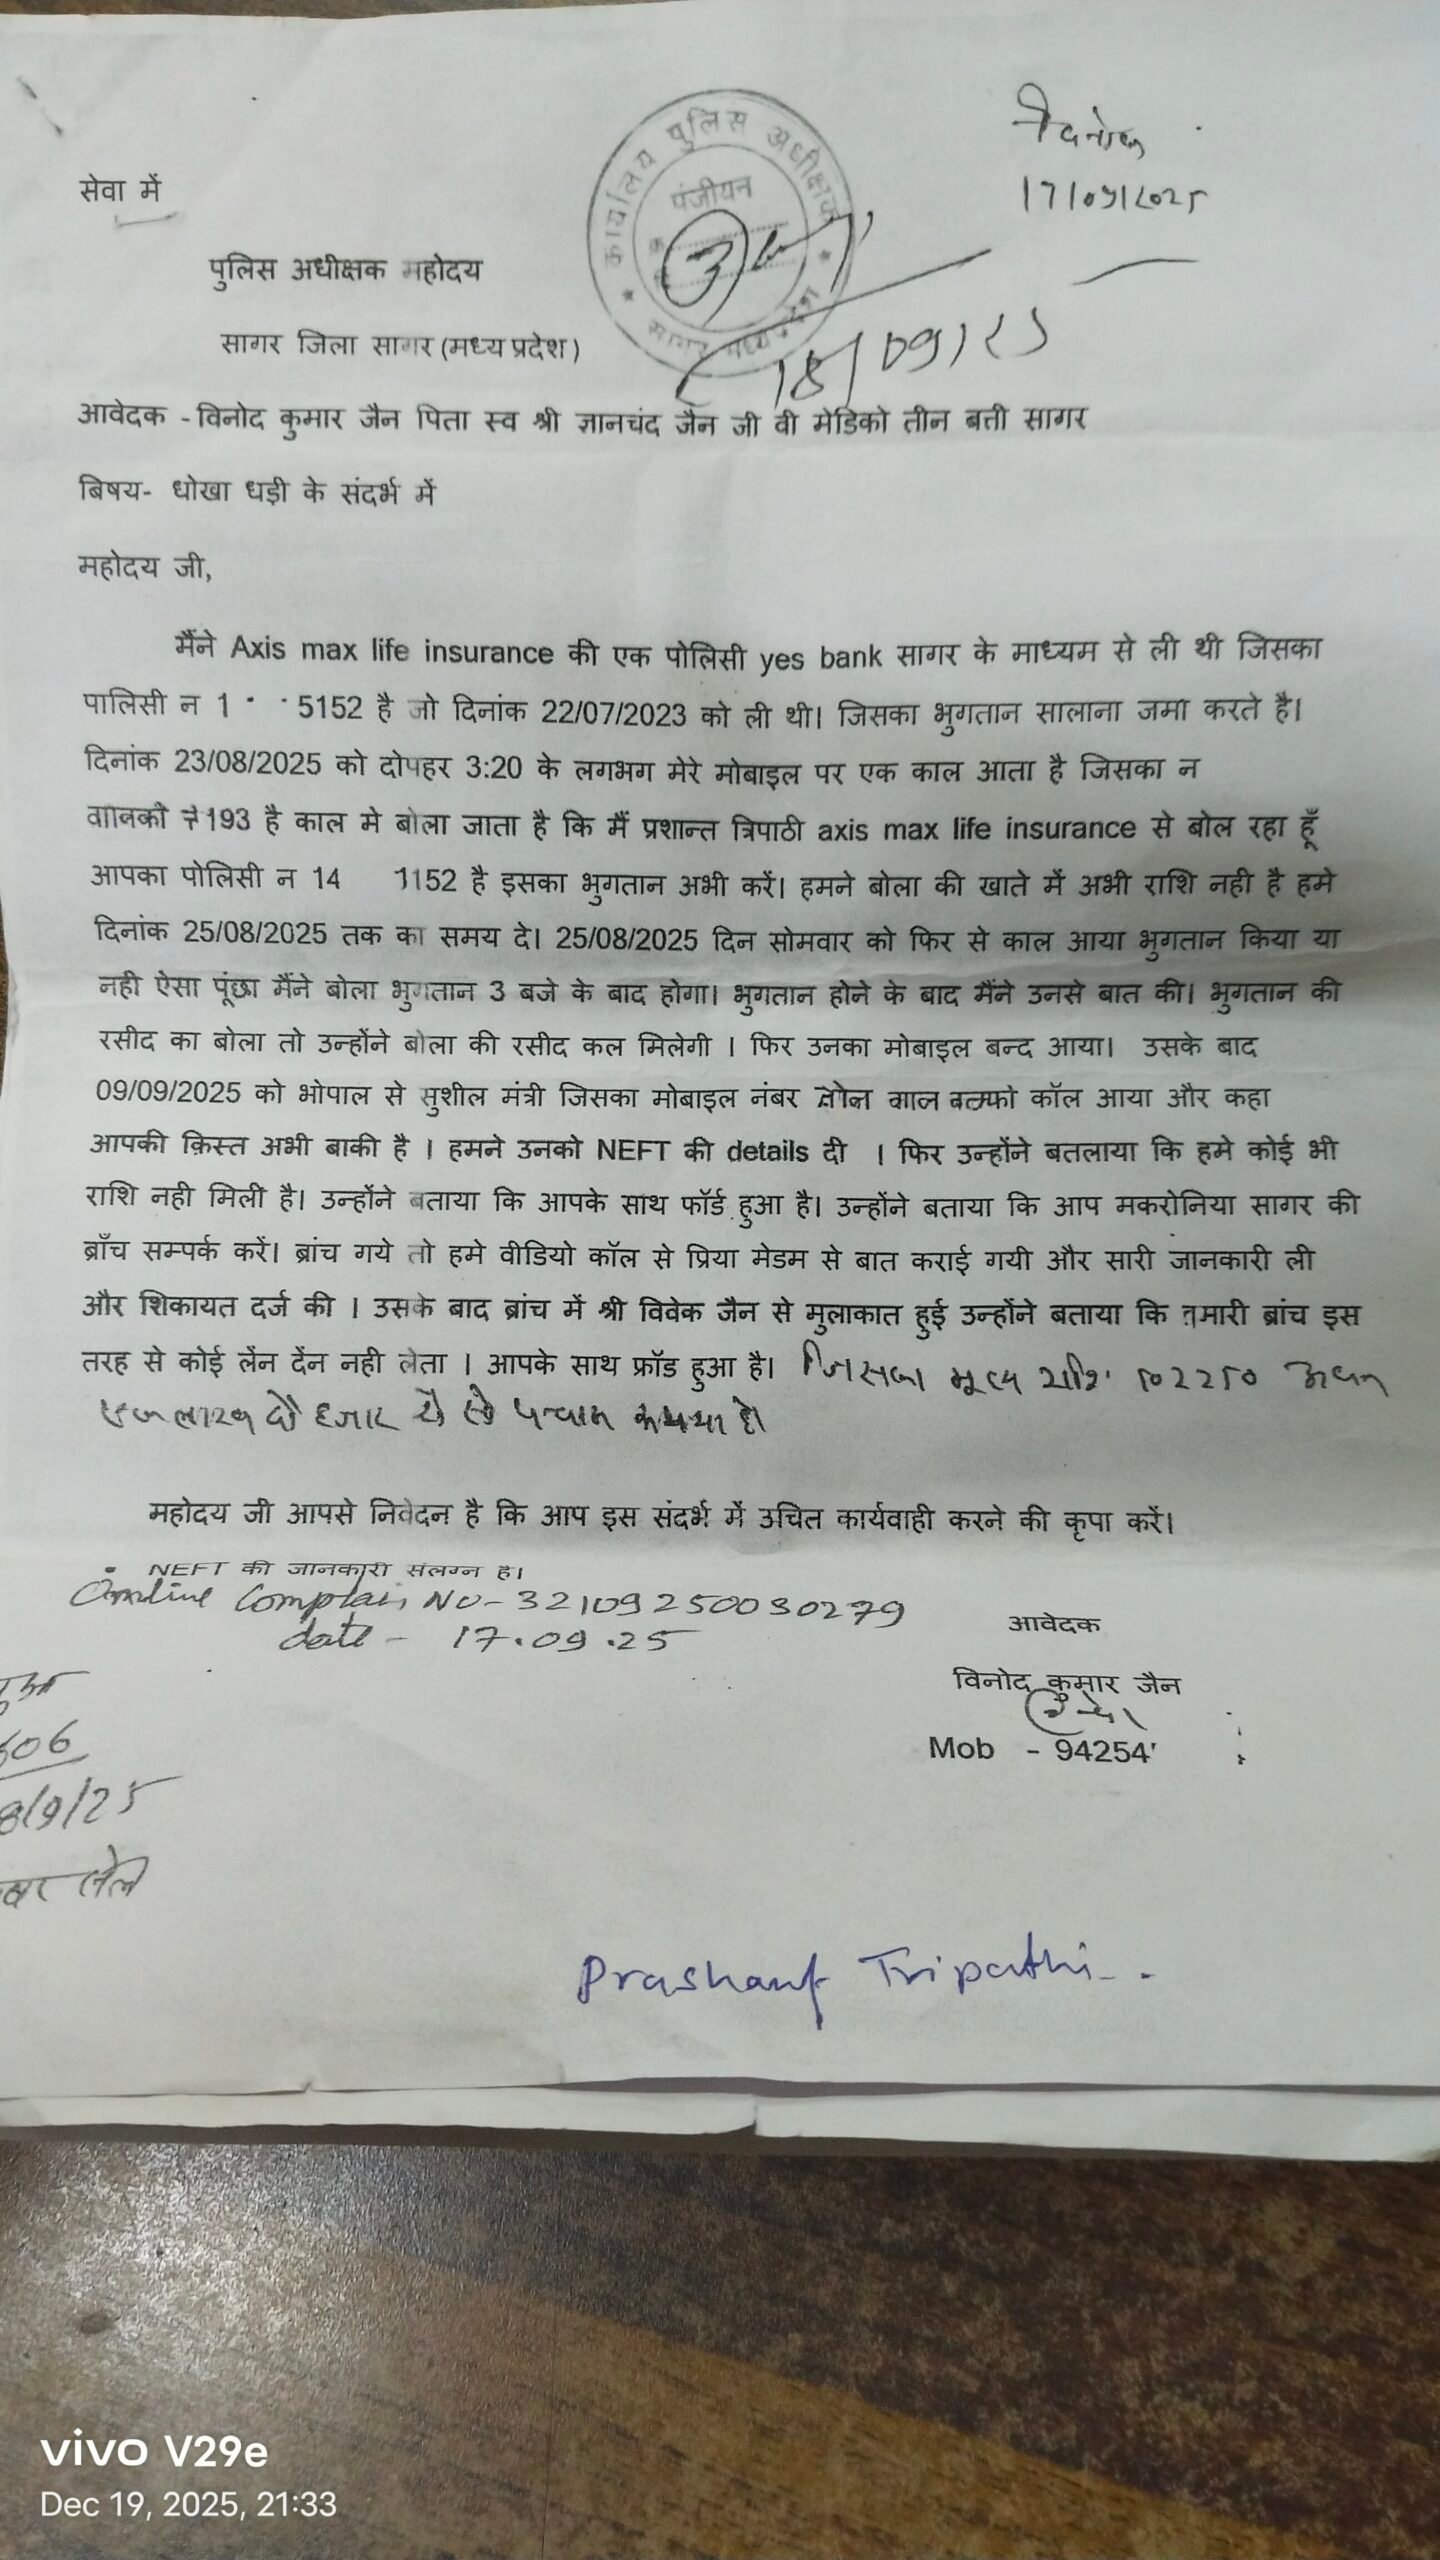 दिनांक
17/09/2025
कार्यालय पुलिस अधीक्षक
पंजीयन
सागर मध्य प्रदेश
18/09/25
सेवा में
पुलिस अधीक्षक महोदय
सागर जिला सागर (मध्य प्रदेश)
आवेदक - विनोद कुमार जैन पिता स्व श्री ज्ञानचंद जैन जी वी मेडिको तीन बत्ती सागर
बिषय- धोखा धड़ी के संदर्भ में
महोदय जी,
मैंने Axis max life insurance की एक पोलिसी yes bank सागर के माध्यम से ली थी जिसका
पालिसी न 1 5152 है जो दिनांक 22/07/2023 को ली थी। जिसका भुगतान सालाना जमा करते है।
दिनांक 23/08/2025 को दोपहर 3:20 के लगभग मेरे मोबाइल पर एक काल आता है जिसका न
193 है काल मे बोला जाता है कि मैं प्रशान्त त्रिपाठी axis max life insurance से बोल रहा हूँ
आपका पोलिसी न 14 1152 है इसका भुगतान अभी करें। हमने बोला की खाते में अभी राशि नही है हमे
दिनांक 25/08/2025 तक का समय दे। 25/08/2025 दिन सोमवार को फिर से काल आया भुगतान किया या
नही ऐसा पूंछा मैंने बोला भुगतान 3 बजे के बाद होगा। भुगतान होने के बाद मैंने उनसे बात की। भुगतान की
रसीद का बोला तो उन्होंने बोला की रसीद कल मिलेगी । फिर उनका मोबाइल बन्द आया। उसके बाद
09/09/2025 को भोपाल से सुशील मंत्री जिसका मोबाइल नंबर कॉल आया और कहा
आपकी क़िस्त अभी बाकी है । हमने उनको NEFT की details दी । फिर उन्होंने बतलाया कि हमे कोई भी
राशि नही मिली है। उन्होंने बताया कि आपके साथ फॉर्ड हुआ है। उन्होंने बताया कि आप मकरोनिया सागर की
ब्राँच सम्पर्क करें। ब्रांच गये तो हमे वीडियो कॉल से प्रिया मेडम से बात कराई गयी और सारी जानकारी ली
और शिकायत दर्ज की । उसके बाद ब्रांच में श्री विवेक जैन से मुलाकात हुई उन्होंने बताया कि हमारी ब्रांच इस
तरह से कोई लेंन देंन नही लेता । आपके साथ फ्रॉड हुआ है। जिसका मूल्य राशि 102250
एक लाख दो हजार दो सो पचास रूपया है।
महोदय जी आपसे निवेदन है कि आप इस संदर्भ में उचित कार्यवाही करने की कृपा करें।
NEFT की जानकारी संलग्न है।
Online Complain No- 32109250030279
date - 17.09.25
आवेदक
विनोद कुमार जैन
Mob - 94254
606
8/9/25
Prashant Tripathi
vivo V29e
Dec 19, 2025, 21:33